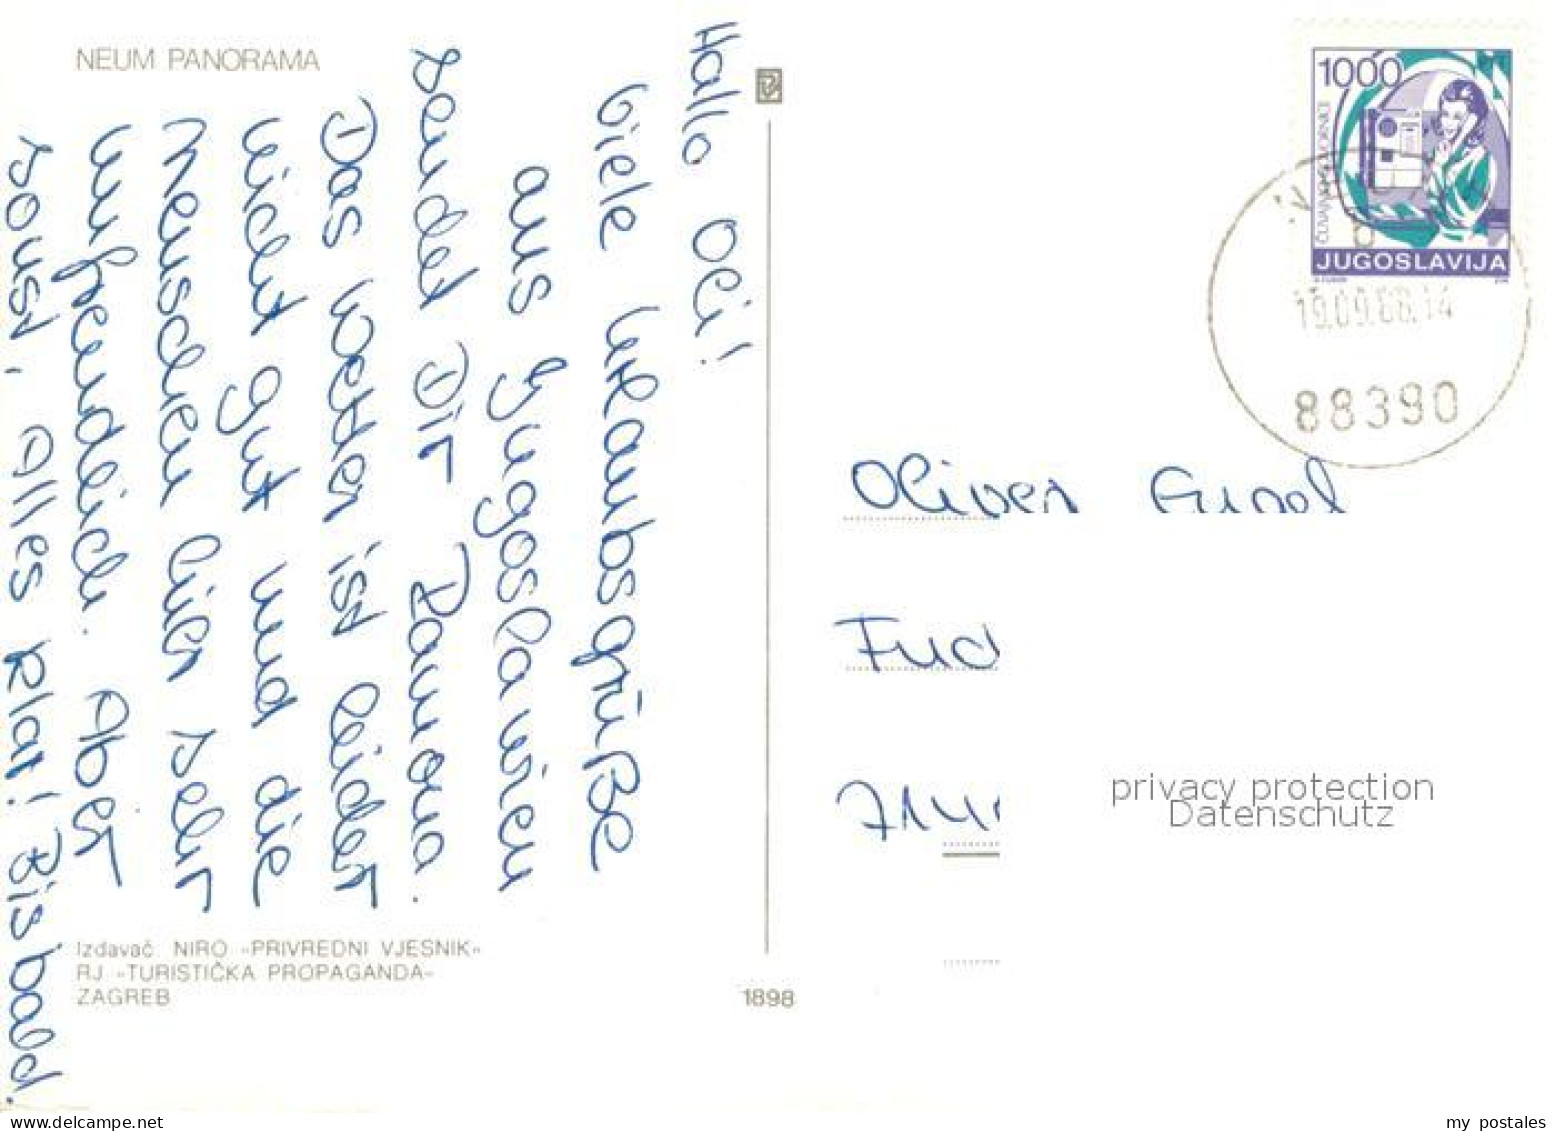 NEUM PANORAMA
Hallo Oli!
Viele Urlaubsgrüße
aus Yugoslawien
sendet Dir Ramona.
Das Wetter ist leider
nicht gut und die
Menschen hier sehr
unfreundlich. Aber
sonst, Alles klar! Bis bald.
Izdavač NIRO »PRIVREDNI VJESNIK«
RJ »TURISTIČKA PROPAGANDA«
ZAGREB
1898
1000
PTT
ČUVAJMO GOVORNICE
JUGOSLAVIJA
88390
Oliver
privacy protection
Datenschutz
my postales
www.delcampe.net